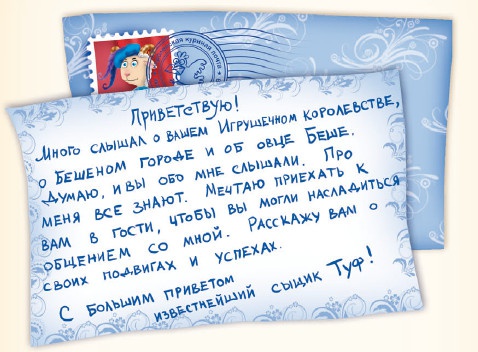 куриная почта
Приветствую!
Много слышал о вашем Игрушечном королевстве,
о Бешеном городе и об овце Беше.
Думаю, и вы обо мне слышали. Про
меня все знают. Мечтаю приехать к
вам в гости, чтобы вы могли насладиться
общением со мной. Расскажу вам о
своих подвигах и успехах.
С большим приветом
известнейший сыщик Туф!